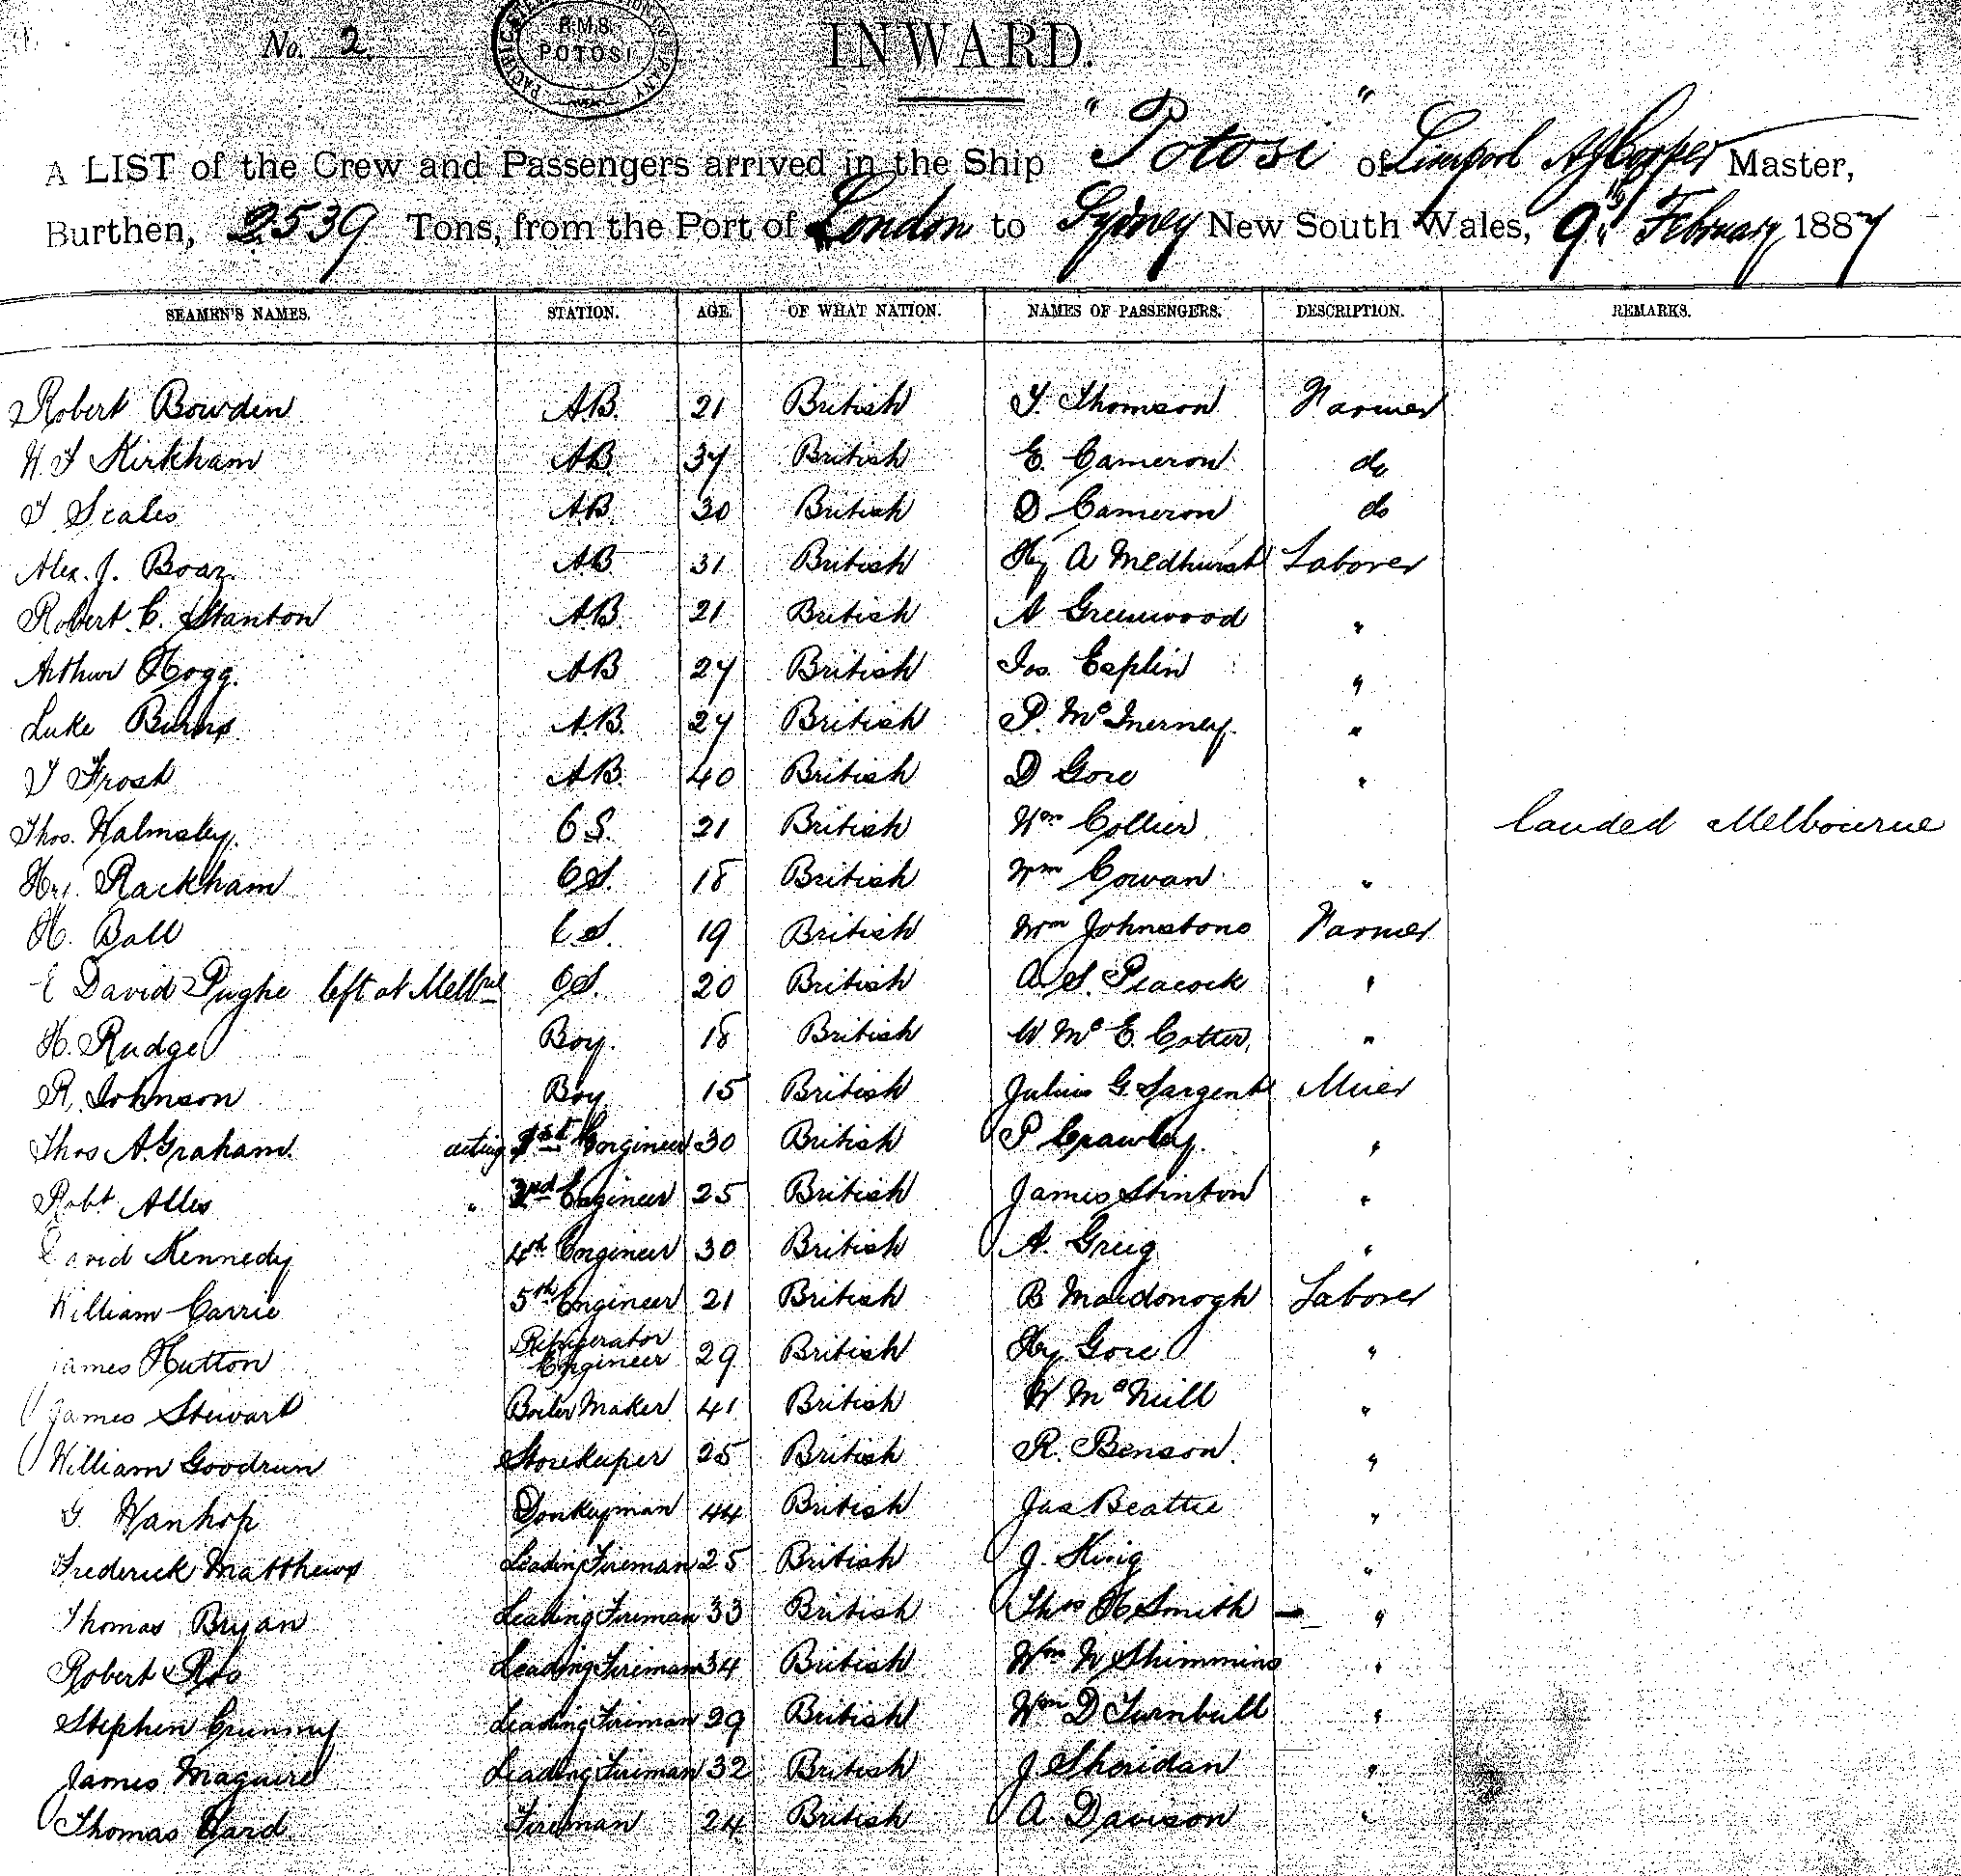 No. 2.
PACIFIC
R.M.S.
POTOSI
INWARD.
A LIST of the Crew and Passengers arrived in the Ship "Potosi" of Liverpool Master,
Burthen, 2539 Tons, from the Port of London to Sydney New South Wales, 9th February 1887
SEAMEN'S NAMES. STATION. AGE. OF WHAT NATION. NAMES OF PASSENGERS. DESCRIPTION. REMARKS.
Robert Bowden A.B. 21 British T. Thomson Farmer
W T Kirkham A.B. 37 British E. Cameron do
T Scales A.B. 30 British D Cameron do
Alex. J. Boaz A.B. 31 British Hy A Medhurst Laborer
Robert C. Stanton A.B. 21 British A Greenwood "
Arthur Hogg. A.B 27 British Jas. Esplin "
Luke Burns A.B. 27 British P. McInerney "
T Frost A.B. 40 British D Gore "
Thos. Walmsley. O S. 21 British Wm Collier landed Melbourne
Hry. Rackham O S. 18 British Wm Cowan "
H. Ball O S. 19 British Wm Johnstone Farmer
E David Pughe left at Melbne O S. 20 British A. S. Peacock "
H. Rudge Boy. 18 British W McE. Cotter "
R. Johnson Boy 15 British Julius G. Sargent Miner
Thos A. Graham acting 1st Engineer 30 British P Crawley "
Robt Alles " Engineer 25 British James Stinton "
David Kennedy 4th Engineer 30 British A. Greig "
William Carrie 5th Engineer 21 British B Macdonogh Laborer
James Hutton Refrigerator Engineer 29 British Hy Gore "
James Stewart Boiler Maker 41 British W McNeill "
William Goodrun Storekeeper 25 British R. Benson "
G. Wanhop Donkeyman 44 British Jas Beattie "
Frederick Matthews Leading Fireman 25 British J. King "
Thomas Bryan Leading Fireman 33 British Thos H Smith "
Robert Leading Fireman 34 British Wm N Shimmins "
Stephen Crummy Leading Fireman 29 British Wm D Turnbull "
James Maguire Leading Fireman 32 British J Sheridan "
Thomas Ward Fireman 24 British A. Davison "